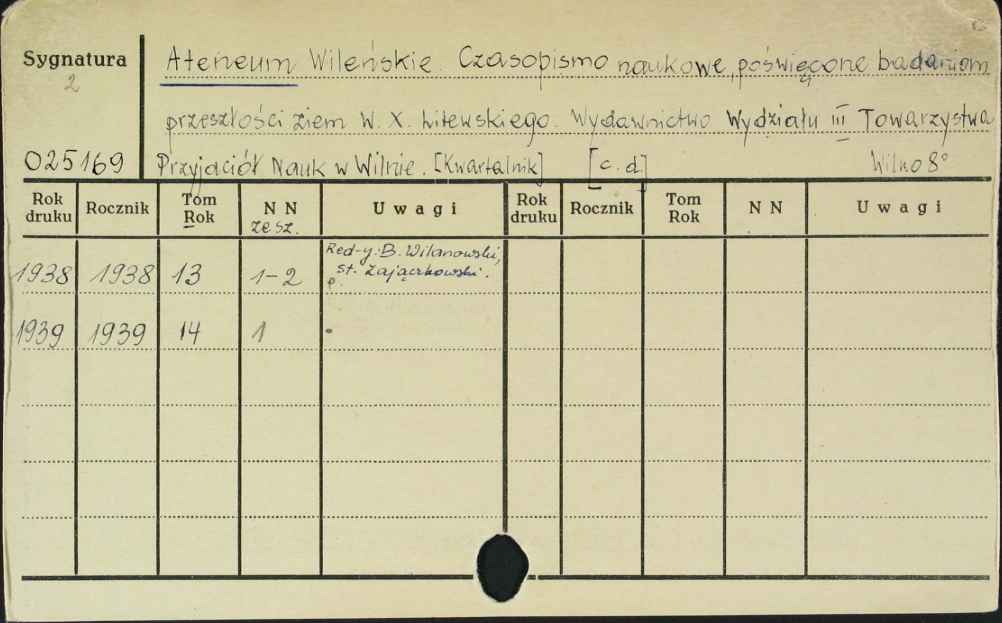 Sygnatura
2
Ateneum Wileńskie. Czasopismo naukowe, poświęcone badaniom
przeszłości ziem W. X. Litewskiego. Wydawnictwo Wydziału III Towarzystwa
025169 Przyjaciół Nauk w Wilnie. [Kwartalnik] [c. d] Wilno 8°
Rok druku Rocznik Tom Rok NN zesz. Uwagi Rok druku Rocznik Tom Rok NN Uwagi
1938 1938 13 1-2 Red-y: B. Wilanowski,
St. Zajączkowski.
1939 1939 14 1